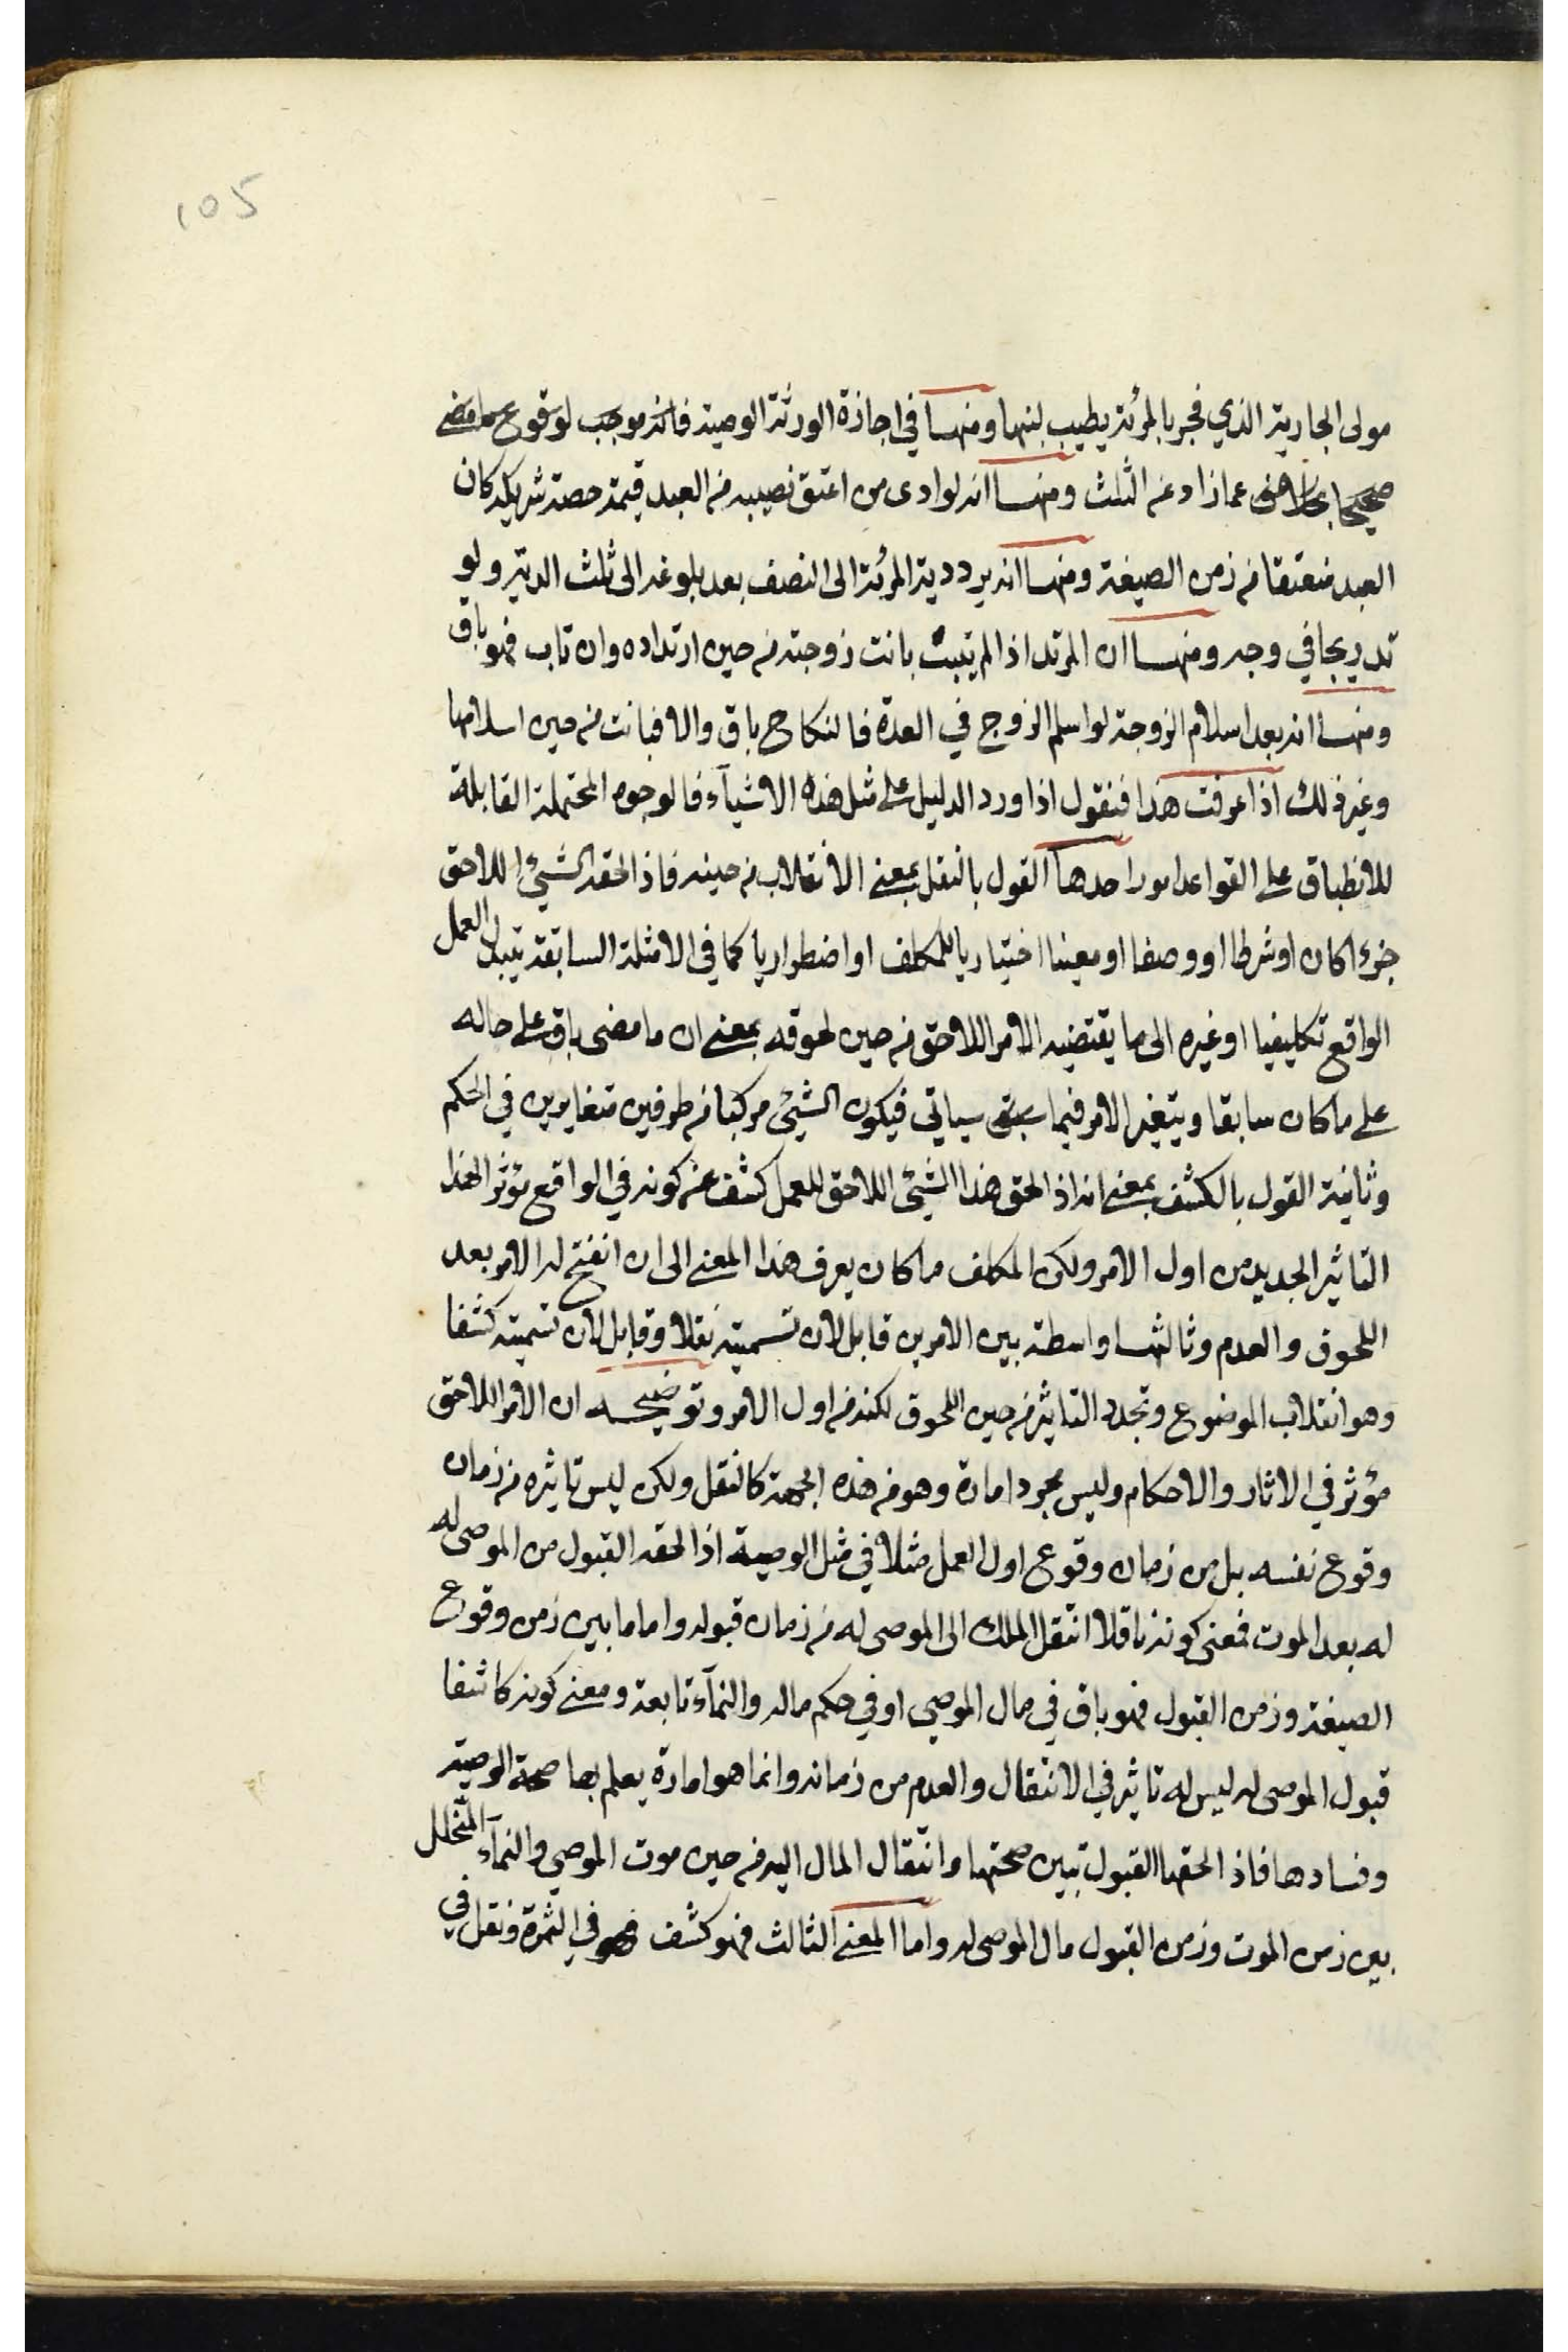 105
مولى الجارية الذي فجر بالمرئة يطيب لبنها ومنها في اجازة الورثة الوصية فانه موجب لوقوع ما مضى
صحيحا عما زاد عن الثلث ومنها انه لو ادى من اعتق نصيبه من العبد قيمة حصة شريكه كان
العبد منعتقا من زمن الصيغة ومنها انه يرد دية المرئة الى النصف بعد بلوغه الى ثلث الدية ولو
تدريجا في وجه ومنها ان المرتد اذا لم يتب بانت زوجته من حين ارتداده وان تاب فهو باق
ومنها انه بعد اسلام الزوجة لو اسلم الزوج في العدة فالنكاح باق والا فبانت من حين اسلامها
وغير ذلك اذا عرفت هذا فنقول اذا ورد الدليل على مثل هذه الاشيآء فالوجوه المحتملة القابلة
للانطباق على القواعد امور احدها القول بالنقل بمعنى الانقلاب من حينه فاذا لحقه الشيئ اللاحق
جزء اكان او شرطا او وصفا او معينا اختياريا للمكلف او اضطراريا كما في الامثلة السابقة يتبدل العمل
الواقع تكليفيا او غيره الى ما يقتضيه الامر اللاحق من حين لحوقه بمعنى ان ما مضى باق على حاله
على ما كان سابقا ويتغير الامر فيما سياتي فيكون الشيئ مركبا من طرفين متغايرين في الحكم
وثانية القول بالكشف بمعنى انه اذا لحق هذا الشيئ اللاحق للعمل كشف عن كونه في الواقع مؤثر الهذا
التاثير الجديد من اول الامر ولكن المكلف ما كان يعرف هذا المعنى الى ان انفتح له الامر بعد
اللحوق والعدم وثالثها واسطة بين الامرين قابل لان تسميته نقلا وقابل لان تسميته كشفا
وهو انقلاب الموضوع وتجدد التاثير من حين اللحوق لكنه من اول الامر وتوضيحه ان الامر اللاحق
مؤثر في الاثار والاحكام وليس مجرد امارة وهو من هذه الجهة كالنقل ولكن ليس تاثيره من زمان
وقوع نفسه بل من زمان وقوع اول العمل مثلا في مثل الوصية اذا لحقه القبول من الموصى له
له بعد الموت فمعنى كونه ناقلا انتقل الملك الى الموصى له من زمان قبوله واما ما بين زمن وقوع
الصيغة وزمن القبول فهو باق في مال الموصي او في حكم ماله والنمآء تابعة ومعنى كونه كاشفا
قبول الموصى له ليس له تاثير في الانتقال والعدم من زمانه وانما هو امارة يعلم بها صحة الوصية
وفسادها فاذا لحقها القبول تبين صحتها وانتقال المال اليه من حين موت الموصي والنمآء المتخلل
بين زمن الموت وزمن القبول مال الموصى له واما المعنى الثالث فهو كشف في الثمرة ونقل في